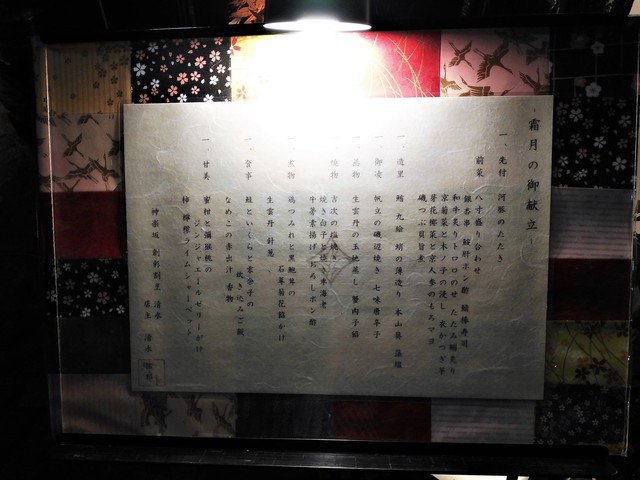 霜月の御献立
一、先付 河豚のたたき
前菜 八寸盛り合わせ
銀杏串 鮟肝ポン酢
和牛炙りトロロのせ
京菊菜と木ノ子の浸し
芽花椰菜と京人参の
磯つぶ貝旨煮
一、造里 鮪 丸絵 蛸の薄造り 本山葵
一、御凌 帆立の磯辺焼き 七味唐辛子
一、蒸物 生雲丹の玉地蒸し 蟹肉子餡
焼物 吉次の塩焼き
焼き白子と焼き車海老
牛蒡素揚げ おろしポン酢
一、煮物 鶏つみれと黒鮑茸の
石薄菊花餡かけ
生雲丹 針葱
一、食事 鮭といくらと雲余子の
炊き込みご飯
なめこの赤出汁 香物
一、甘美 蜜柑と彌猴桃の
ジンジャエールゼリーがけ
柿 檸檬ライムシャーベット
神楽坂 創彩割烹 清水
店主 清水